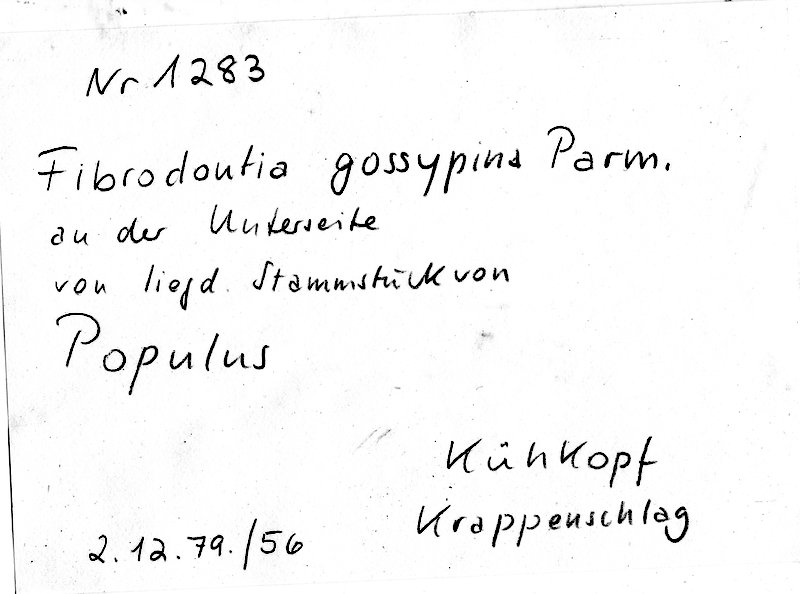 Nr 1283
Fibrodontia gossypina Parm.
an der Unterseite
von liegd. Stammstück von
Populus
Kühkopf
Krappenschlag
2.12.79./56